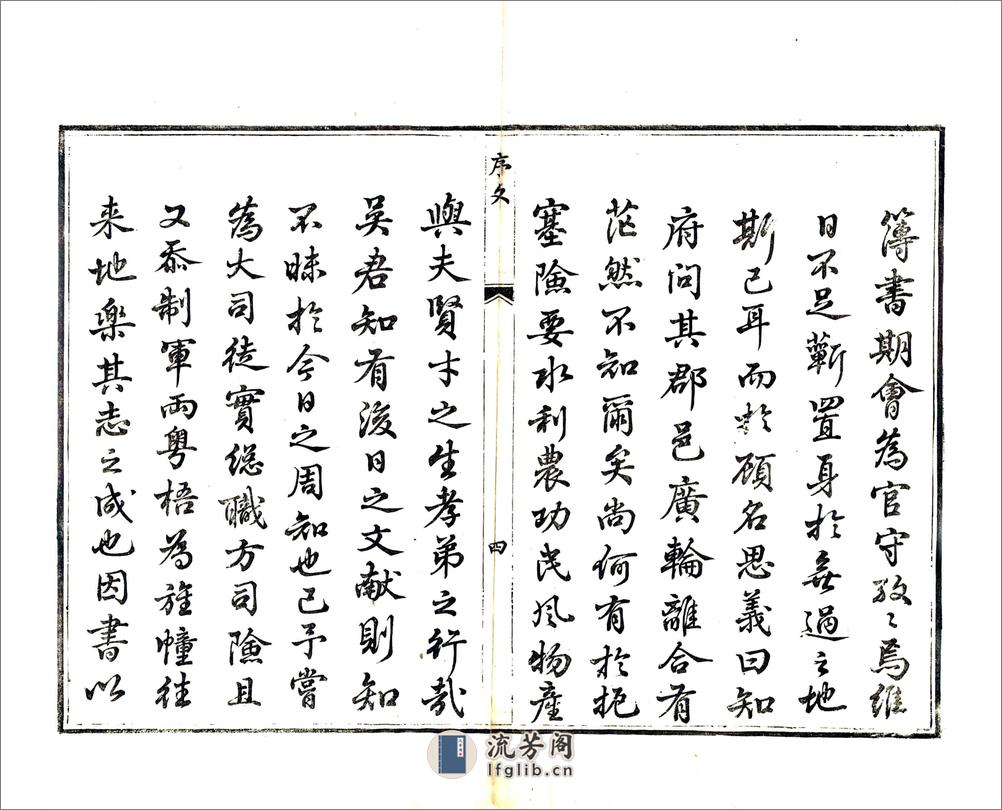 簿書期會為官守孜〻焉維
日不足蘄置身於無過之地
斯已耳而於顧名思義曰知
府問其郡邑廣輪離合有
茫然不知爾矣尚何有於扼
塞險要水利農功民風物產
序文
四
與夫賢才之生孝弟之行哉
吴君知有後日之文献則知
不昧於今日之周知也已予嘗
為大司徒實總職方司險且
又忝制軍両粤梧為旌幢往
来地樂其志之成也因書以
流芳阁
lfglib.cn